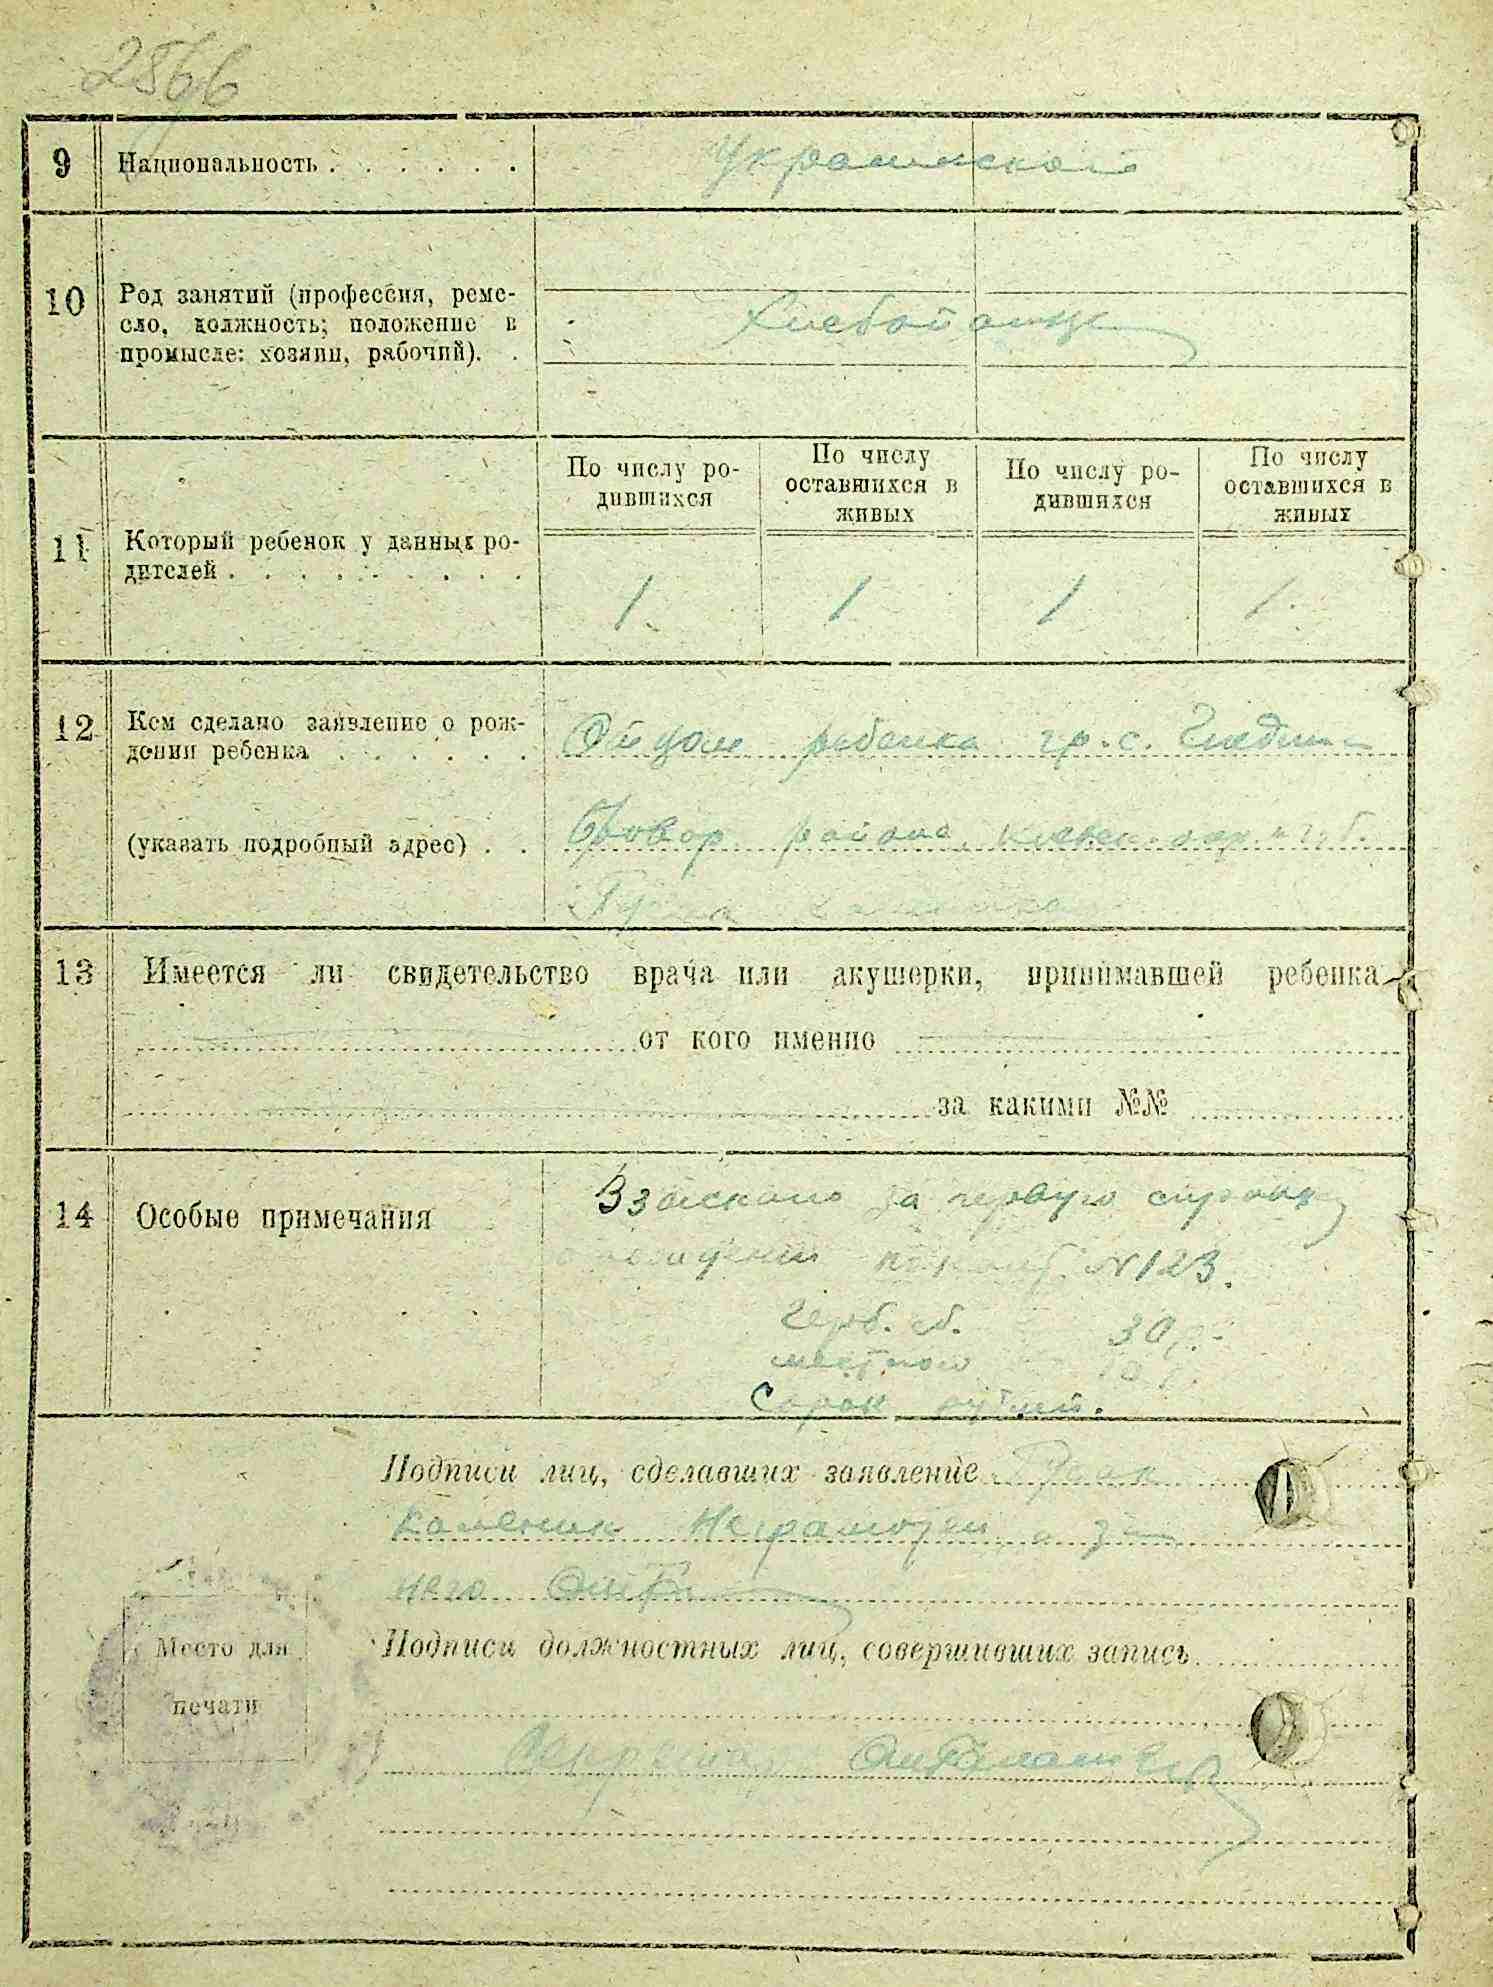 2566
9 Национальность . . . . . . Украинской
10 Род занятий (профессия, реме-
сло, должность; положение в
промысле: хозяин, рабочий). .
11 Который ребенок у данных ро-
дителей . . . . . . . . .
По числу ро-
дившихся
По числу
оставшихся в
живых
По числу ро-
дившихся
По числу
оставшихся в
живых
1 1 1 1
12 Кем сделано заявление о рож-
дении ребенка . . . . . .
(указать подробный адрес) . .
Отцом ребенка гр. с.
района, Киевск. окр. и губ.
13 Имеется ли свидетельство врача или акушерки, принимавшей ребенка
от кого именно
за какими №№
14 Особые примечания
Взыскано за первую
N 123.
Герб. сб. 30 р.
местного 10 р.
Сорок рублей.
Подписи лиц, сделавших заявление
неграмотен, а за
него
Подписи должностных лиц, совершивших запись
Место для
печати